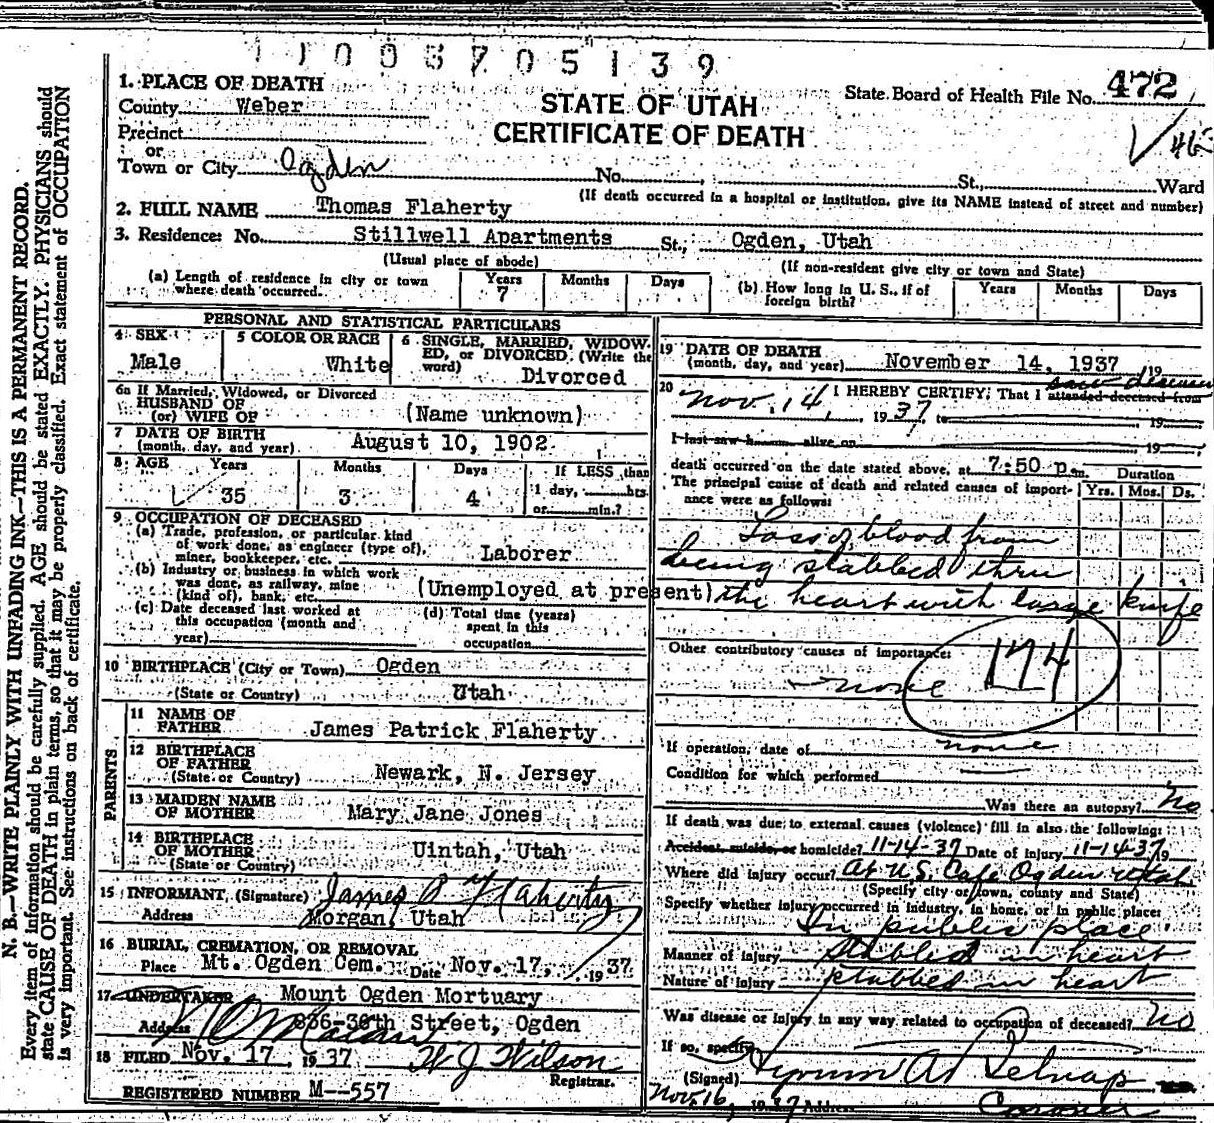 1 1 0 0 3 7 0 5 1 3 9
N. B.—WRITE PLAINLY WITH UNFADING INK—THIS IS A PERMANENT RECORD.
Every item of information should be carefully supplied. AGE should be stated EXACTLY. PHYSICIANS should
state CAUSE OF DEATH in plain terms, so that it may be properly classified. Exact statement of OCCUPATION
is very important. See instructions on back of certificate.
1. PLACE OF DEATH
County Weber
Precinct
or
Town or City Ogden
STATE OF UTAH
CERTIFICATE OF DEATH
State Board of Health File No. 472
No. St., Ward
(If death occurred in a hospital or institution, give its NAME instead of street and number)
2. FULL NAME Thomas Flaherty
3. Residence: No. Stillwell Apartments St., Ogden, Utah
(Usual place of abode) (If non-resident give city or town and State)
(a) Length of residence in city or town where death occurred. Years 7 Months Days
(b) How long in U. S., if of foreign birth? Years Months Days
PERSONAL AND STATISTICAL PARTICULARS
4 SEX Male
5 COLOR OR RACE White
6 SINGLE, MARRIED, WIDOWED, or DIVORCED. (Write the word) Divorced
6a If Married, Widowed, or Divorced
HUSBAND OF
(or) WIFE OF (Name unknown)
7 DATE OF BIRTH
(month, day, and year) August 10, 1902
8 AGE Years 35 Months 3 Days 4 If LESS than 1 day, hrs. or min.?
9 OCCUPATION OF DECEASED
(a) Trade, profession, or particular kind of work done, as engineer (type of), miner, bookkeeper, etc. Laborer
(b) Industry or business in which work was done, as railway, mine (kind of), bank, etc. (Unemployed at present)
(c) Date deceased last worked at this occupation (month and year)
(d) Total time (years) spent in this occupation
10 BIRTHPLACE (City or Town) Ogden
(State or Country) Utah
PARENTS
11 NAME OF FATHER James Patrick Flaherty
12 BIRTHPLACE OF FATHER
(State or Country) Newark, N. Jersey
13 MAIDEN NAME OF MOTHER Mary Jane Jones
14 BIRTHPLACE OF MOTHER
(State or Country) Uintah, Utah
15 INFORMANT, (Signature) James P Flaherty
Address Morgan, Utah
16 BURIAL, CREMATION, OR REMOVAL
Place Mt. Ogden Cem. Date Nov. 17, 1937
17 UNDERTAKER Mount Ogden Mortuary
Address 836-30th Street, Ogden
18 FILED Nov. 17, 1937 W J Wilson
Registrar.
REGISTERED NUMBER M--557
19 DATE OF DEATH
(month, day, and year) November 14, 1937, 19
20 I HEREBY CERTIFY, That I attended deceased from saw deceased
Nov. 14, 1937, to 19
I last saw h alive on 19
death occurred on the date stated above, at 7:50 p m.
The principal cause of death and related causes of importance were as follows:
Duration
Yrs. Mos. Ds.
Loss of blood from
being stabbed thru
the heart with large knife
Other contributory causes of importance:
none
174
If operation, date of none
Condition for which performed
Was there an autopsy? No
If death was due to external causes (violence) fill in also the following:
Accident, suicide, or homicide? 11-14-37 Date of injury 11-14-37 19
Where did injury occur? At U.S. Cafe Ogden Utah
(Specify city or town, county and State)
Specify whether injury occurred in industry, in home, or in public place:
In public place
Manner of injury Stabbed in heart
Nature of injury stabbed in heart
Was disease or injury in any way related to occupation of deceased? No
If so, specify
(Signed) Hyrum A Belnap
Nov. 16, 1937 Address Coroner